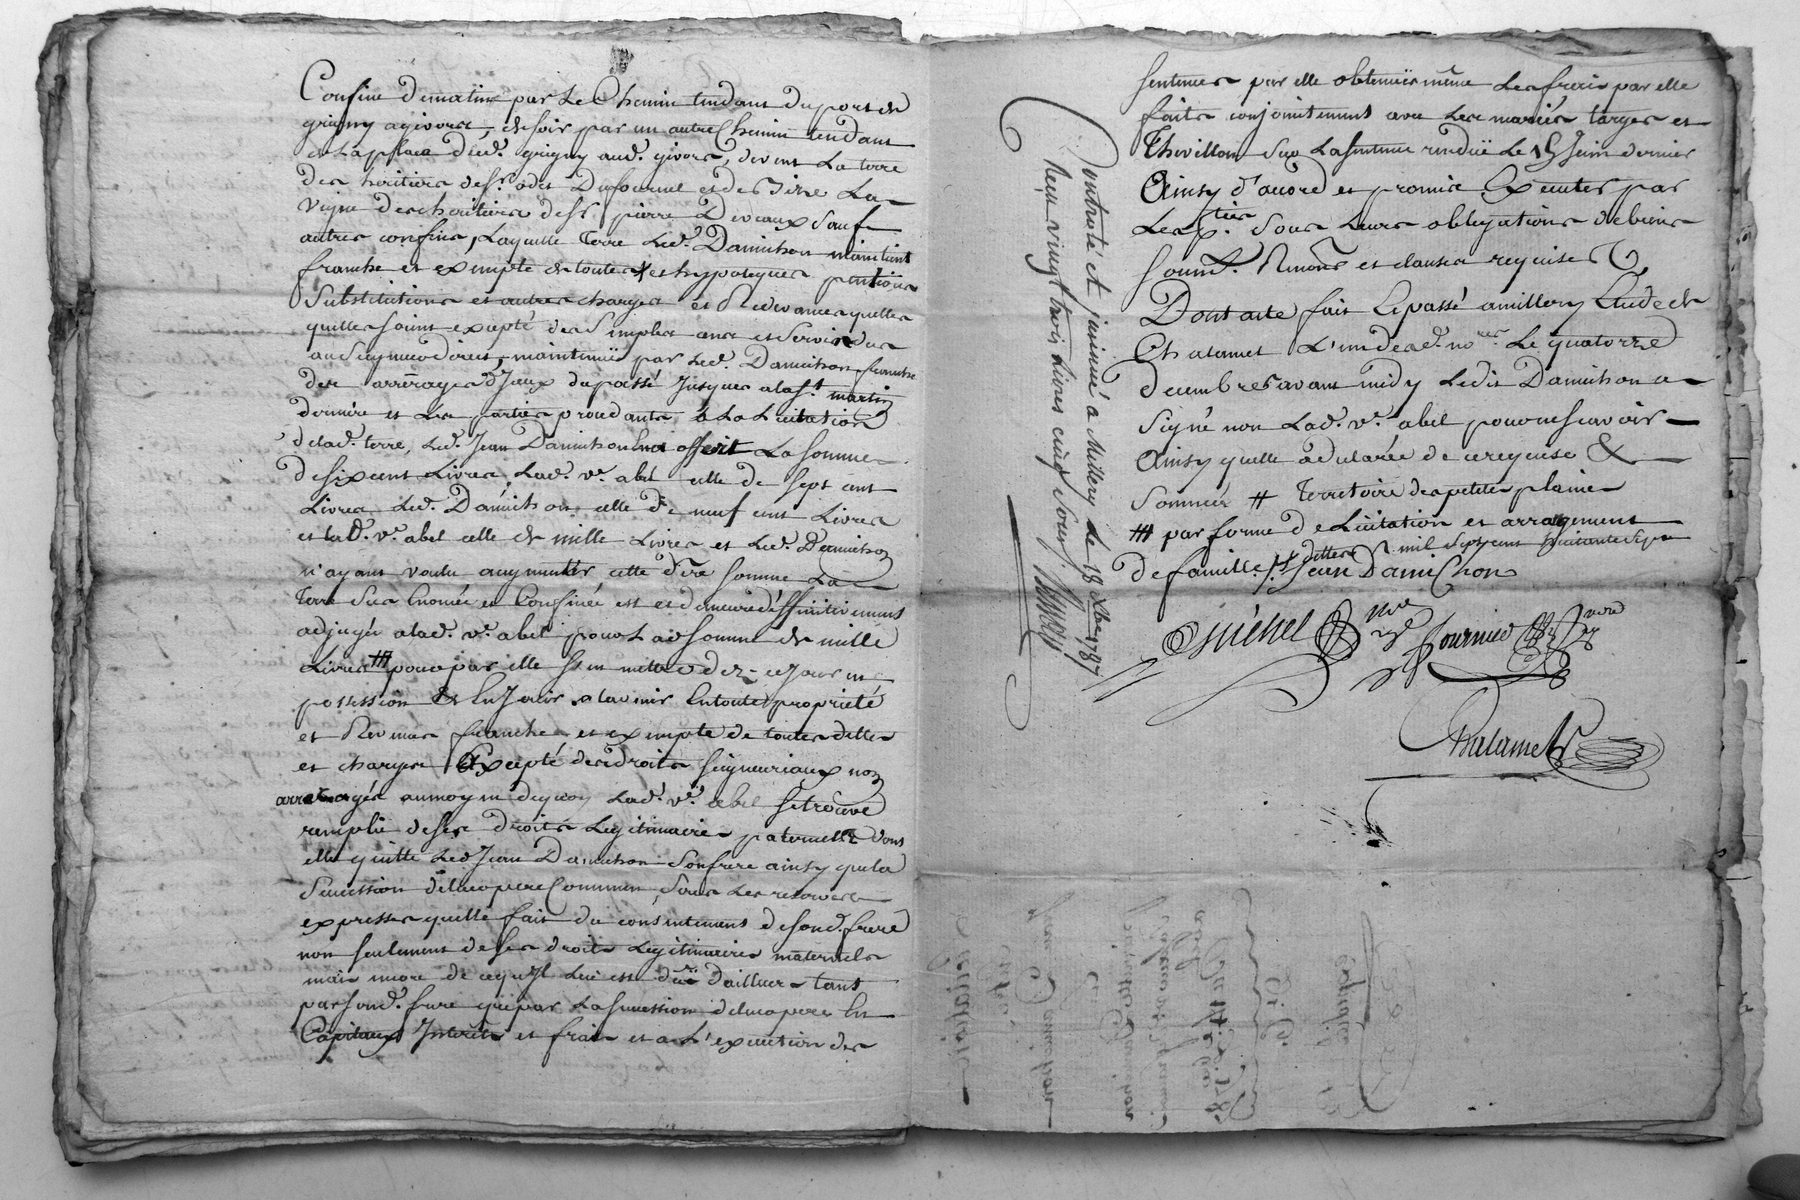 Confine de matin par le Chemin tendant du port de
grigny a givors, de soir par un autre Chemin tendant
de la place dud. grigny aud. givors, de vent La terre
des heritiers de sr. odet Dufournel et de bize La
vigne des heritiers de sr. pierre Deveaux Sauf
autres confins, Laquelle Terre led. Damichon maintient
franche et exempte de toutes hypoteques pentions
Substitutions et autres charges et Redevances quelles
quelles soient excepté des Simples cens et Servis dus
au Seigneur direct, maintenüe par led. Damichon franche
des arrérages d'Jceux du passé Jusques a la st. martin
derniere et les parties procedants à La Licitation
de lad. terre, led. Jean Damichon offert La somme
de six cent Livres, Lad. ve. abel celle de sept cent
Livres led. Damichon celle de neuf cent Livres
et lad. ve. abel celle de mille Livres et led. Damichon
n'ayant voulu augmenter cette dre. somme La
Terre Sus Enomée et Confinée est et demeure déffinitivement
adjugée a lad. ve. abel pour Lad somme de mille
Livres ## pour par elle s'en mettre dez-ce jour en
possession & En Jouir a l'avenir En toute propriété
et Revenus franche et exempte de toutes dettes
et charges Excepté des droits seigneuriaux non
arreragés au moyen de quoy Lad. ve. abel se trouve
remplie de ses droits Legitimaires paternels dont
elle quitte led Jean Damichon son frere ainsy que la
Succession de leur pere Commun, Sous Les reserves
expresses quelle fait du consentement de son d. frere
non seulement de ses droits Legitimaires maternels
mais encore de ce qu'Jl luy est dû d'ailleurs tant
par son d. frere que par La succession de leur pere En
Capitaux Jnterêts et frais et a L'execution des
sentences par elle obtenües même Les frais par elle
faits conjointement avec Les mariés targes et
Thevillon Sur La sentence rendüe Le 15 Juin dernier
Ainsy d'accord et promis Executer par
Les pties. Sous Leurs obligations de biens
soumons. Renons. et clauses requises
Dont acte fait & passé a millery Etude de
Chalamet L'un desd. nores. Le quatorze
decembre avant midy Ledit Damichon a
Signé non Lad. ve. abel pour ne scavoir
Ainsy quelle a declarée de ce requise &
Sommée # Territoire des petites plaines
## par forme de Licitation et arrangement
de famille / dettes / mil sept cent huitante sept
Jean Damichon
Michel nre
Fournier
Chalamet
Controlé et insinué a Millery Le 18 Xbre 1787
Reçu vingt trois livres cinq sous